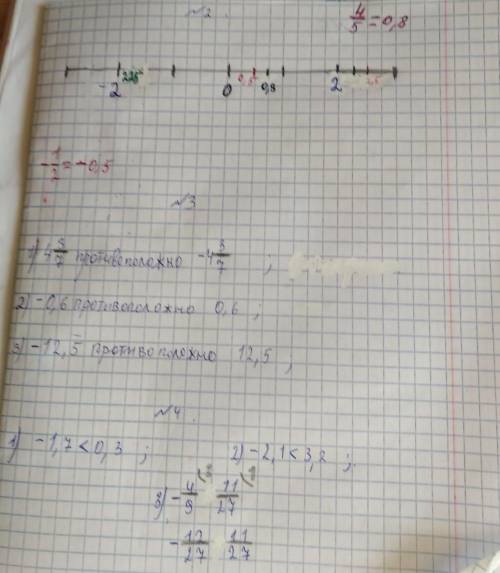 №2.
4/5 = 0,8
-2 2,25 0 0,5 0,8 2 2,5
-1/2 = -0,5
№3
1) 4 3/7 противоположно -4 3/7 ;
2) -0,6 противоположно 0,6 ;
3) -12,5 противоположно 12,5 ;
№4.
1) -1,7 < 0,3 ; 2) -2,1 < 3,2 ;
3) -4/9 11/27
-12/27 11/27